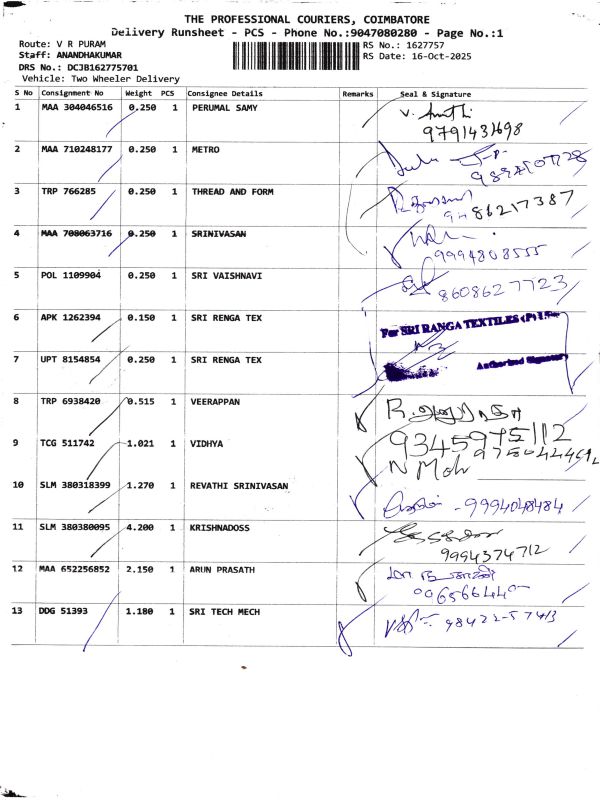 THE PROFESSIONAL COURIERS, COIMBATORE
Delivery Runsheet - PCS - Phone No.:9047080280 - Page No.:1
Route: V R PURAM
RS No.: 1627757
Staff: ANANDHAKUMAR
RS Date: 16-Oct-2025
DRS No.: DCJB162775701
Vehicle: Two Wheeler Delivery
S No Consignment No Weight PCS Consignee Details Remarks Seal & Signature
1 MAA 304046516 0.250 1 PERUMAL SAMY
9791431698
2 MAA 710248177 0.250 1 METRO
3 TRP 766285 0.250 1 THREAD AND FORM
86217387
4 MAA 708063716 0.250 1 SRINIVASAN
9994808555
5 POL 1109904 0.250 1 SRI VAISHNAVI
8608627723
6 APK 1262394 0.150 1 SRI RENGA TEX
For SRI RANGA TEXTILES (P) Ltd
7 UPT 8154854 0.250 1 SRI RENGA TEX
Authorised Signatory
8 TRP 6938420 0.515 1 VEERAPPAN
9 TCG 511742 1.021 1 VIDHYA
9345975112
10 SLM 380318399 1.270 1 REVATHI SRINIVASAN
9994048484
11 SLM 380380095 4.200 1 KRISHNADOSS
9994374712
12 MAA 652256852 2.150 1 ARUN PRASATH
13 DDG 51393 1.180 1 SRI TECH MECH
98422-57413